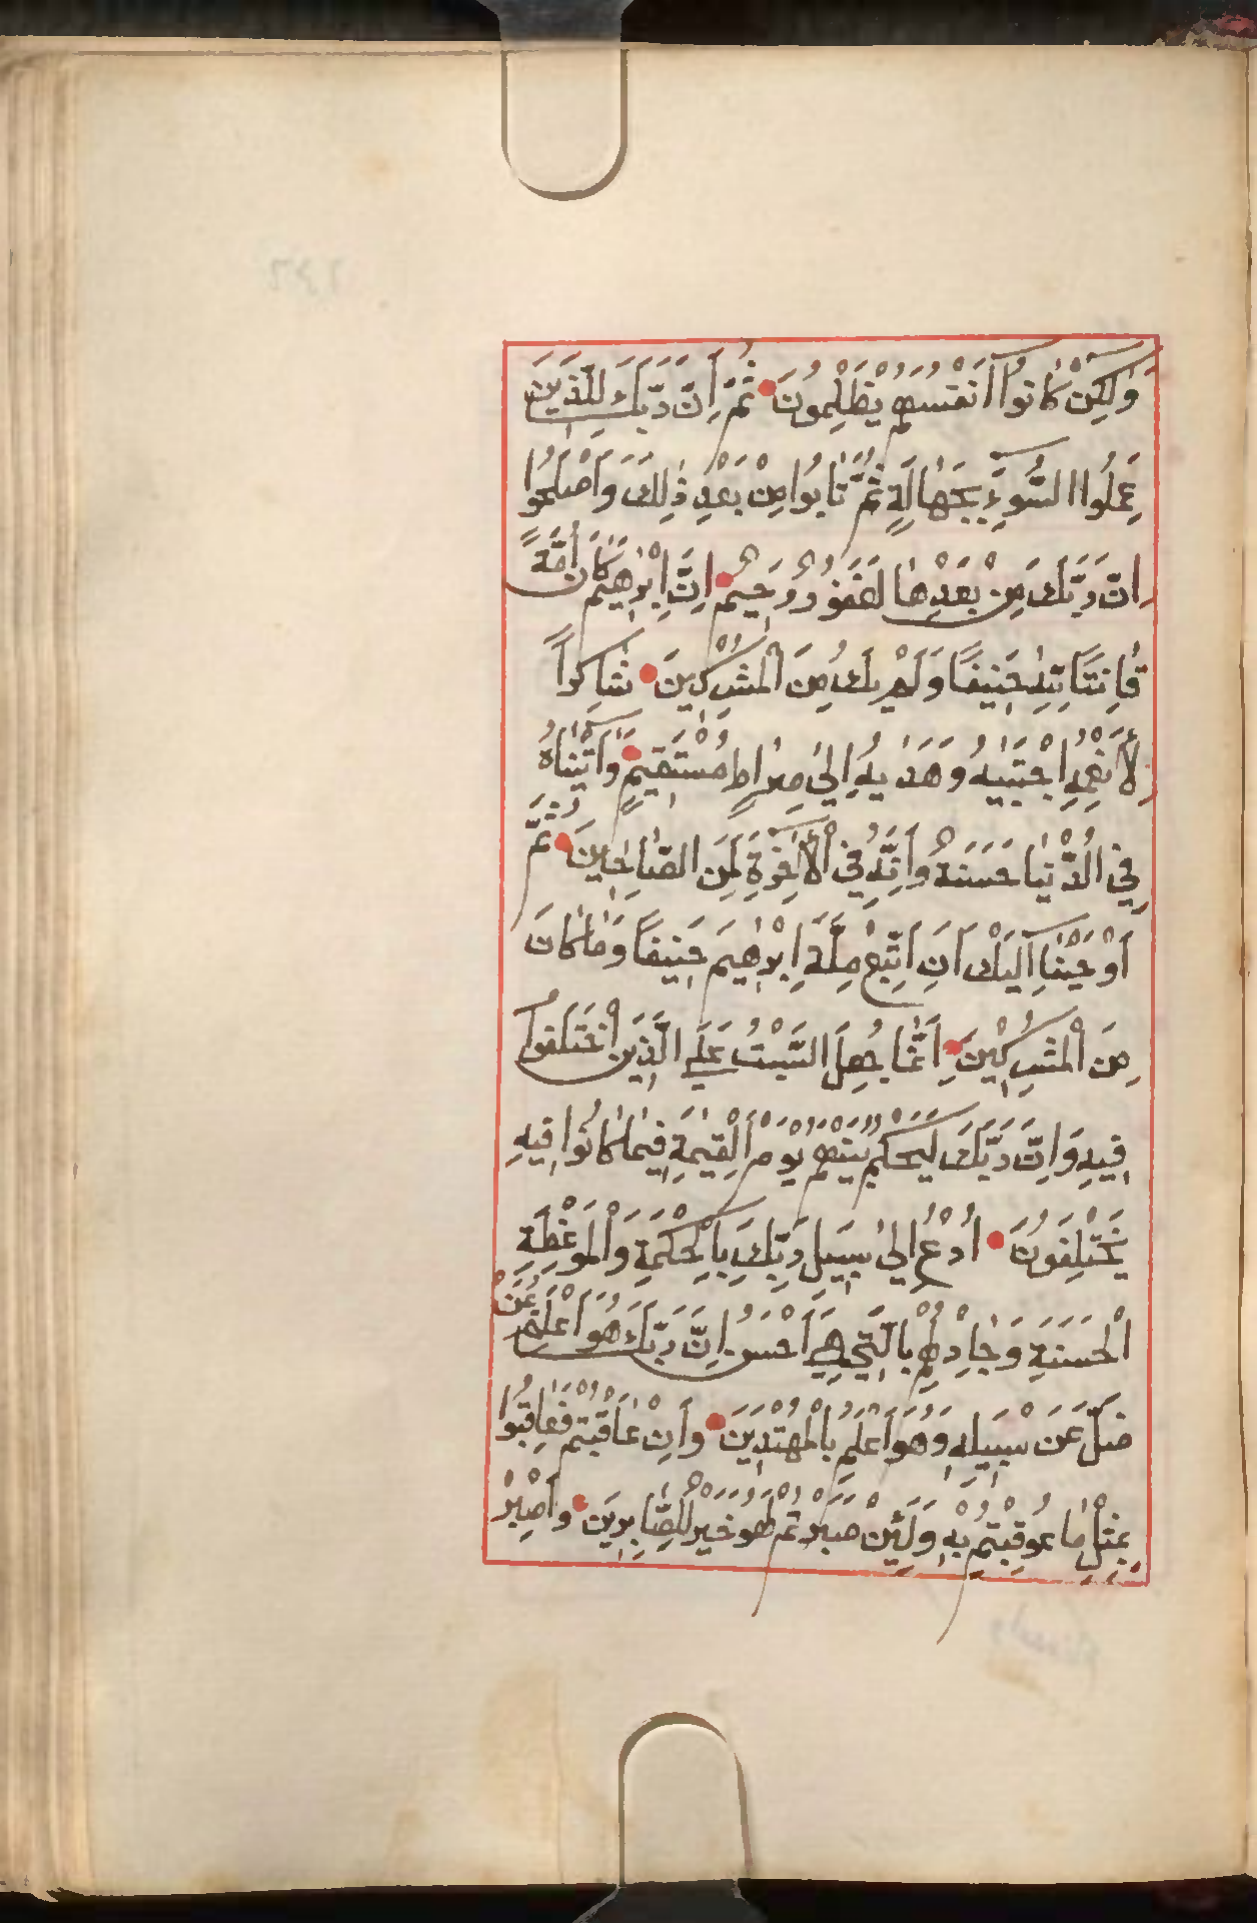 وَلٰكِنْ كَانُوا أَنْفُسَهُمْ يَظْلِمُونَ ثُمَّ إِنَّ رَبَّكَ لِلَّذِينَ
عَمِلُوا السُّوٓءَ بِجَهَالَةٍ ثُمَّ تَابُوا مِنْ بَعْدِ ذٰلِكَ وَأَصْلَحُوا
إِنَّ رَبَّكَ مِنْ بَعْدِهَا لَغَفُورٌ رَحِيمٌ إِنَّ إِبْرٰهِيمَ كَانَ أُمَّةً
قَانِتًا لِلّٰهِ حَنِيفًا وَلَمْ يَكُ مِنَ الْمُشْرِكِينَ شَاكِرًا
لِأَنْعُمِهِ اجْتَبٰيهُ وَهَدٰيهُ إِلىٰ صِرَاطٍ مُسْتَقِيمٍ وَآتَيْنَاهُ
فِي الدُّنْيَا حَسَنَةً وَإِنَّهُ فِي الْأٓخِرَةِ لَمِنَ الصَّالِحِينَ ثُمَّ
أَوْحَيْنَآ إِلَيْكَ أَنِ اتَّبِعْ مِلَّةَ إِبْرٰهِيمَ حَنِيفًا وَمَا كَانَ
مِنَ الْمُشْرِكِينَ إِنَّمَا جُعِلَ السَّبْتُ عَلَى الَّذِينَ اخْتَلَفُوا
فِيهِ وَإِنَّ رَبَّكَ لَيَحْكُمُ بَيْنَهُمْ يَوْمَ الْقِيٰمَةِ فِيمَا كَانُوا فِيهِ
يَخْتَلِفُونَ أُدْعُ إِلىٰ سَبِيلِ رَبِّكَ بِالْحِكْمَةِ وَالْمَوْعِظَةِ
الْحَسَنَةِ وَجَادِلْهُمْ بِالَّتِي هِيَ أَحْسَنُ إِنَّ رَبَّكَ هُوَ أَعْلَمُ بِمَنْ
ضَلَّ عَنْ سَبِيلِهِ وَهُوَ أَعْلَمُ بِالْمُهْتَدِينَ وَإِنْ عَاقَبْتُمْ فَعَاقِبُوا
بِمِثْلِ مَا عُوقِبْتُمْ بِهِ وَلَئِنْ صَبَرْتُمْ لَهُوَ خَيْرٌ لِلصَّابِرِينَ وَاصْبِرْ